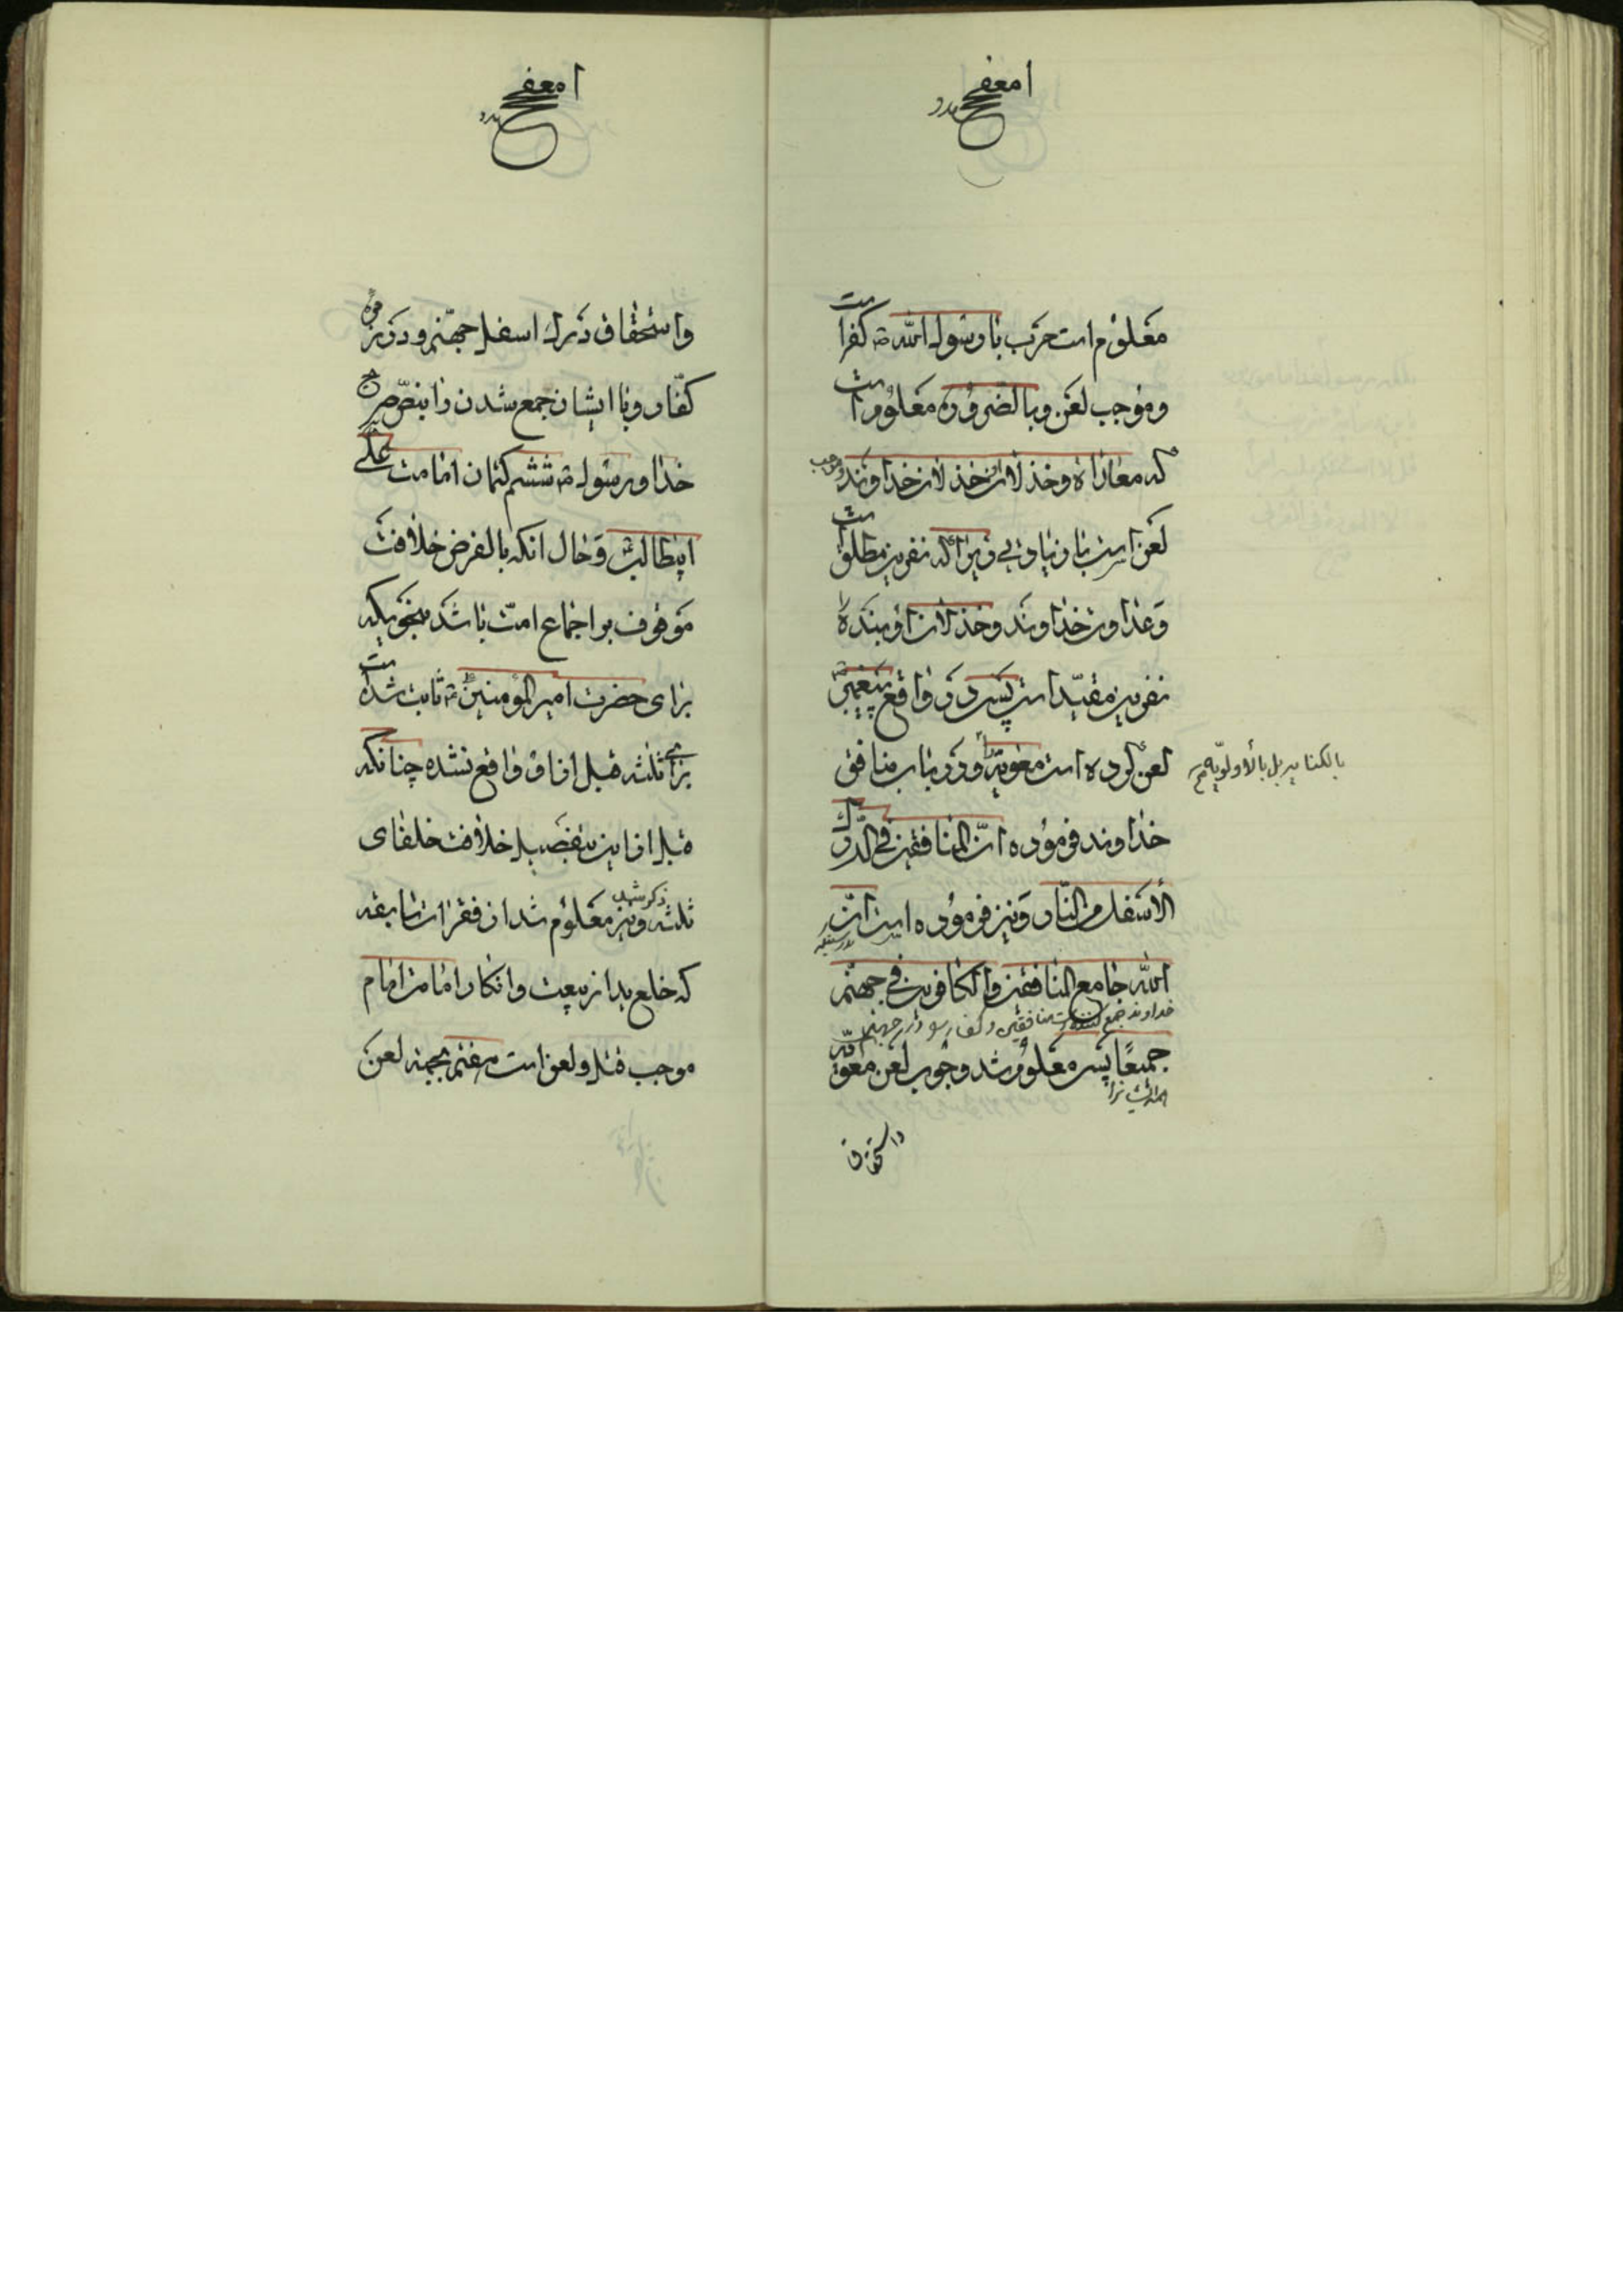 معلوم است حرب با رسول الله ص كفر است
و موجب لعن و بالضروره معلوم است
كه معاداة و خذلان خداوند و موجب
لعن است نفرین مطلق است
و عداوت خداوند و خذلان او بنده را
نفرین مقید است پس در واقع پیغمبر ص
لعن كرده است معویه را و در باب منافق
بالكنایه بل بالأولویه
خداوند فرموده انّ المنافقین فی الدّرك
الأسفل من النّار و نیز فرموده است انّ
الله جامع المنافقین و الكافرین فی جهنّم
خداوند جمع كننده است منافقین و كفار در جهنم
جمیعًا پس معلوم شد وجوب لعن معویه
و استحقاق
و استحقاق درك اسفل جهنّم و در زمره
كفّار و با ایشان جمع شدن را بنصّ صریح
خدا و رسول ص ششم كتمان امامت علی
ابیطالب و حال آنكه بالفرض خلافت
موقوف بر اجماع امّت باشد بنحویكه
برای حضرت امیر المومنین ع ثابت شده است
برای ثلثه قبل اتفاق واقع نشده چنانكه
قبل از این بتفصیل خلافت خلفای
ثلثه ذكر شد و نیز معلوم شد از فقرات سابقه
كه خلع ید از بیعت و انكار امامت امام
موجب قتل و لعن است هفتم بجهة لعن